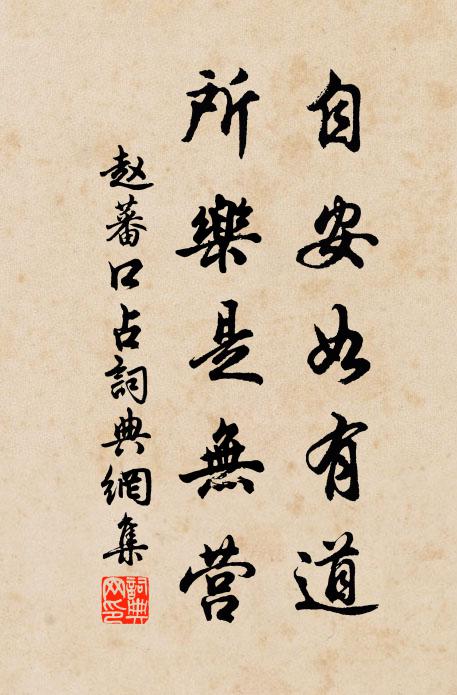 自安如有道
所樂是無营
赵蕃口占詞典網集
詞典网印